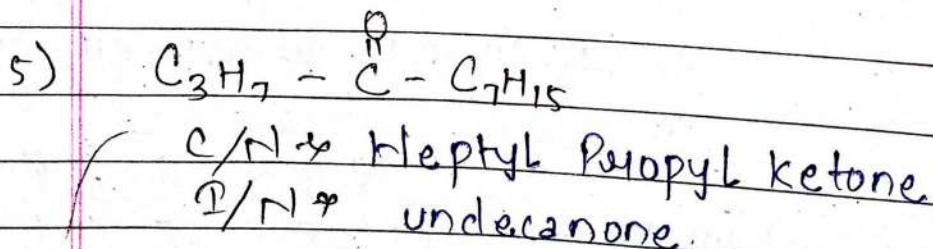 5) C₃H₇ - C(=O) - C₇H₁₅
C/N → Heptyl Propyl ketone
I/N → undecanone.